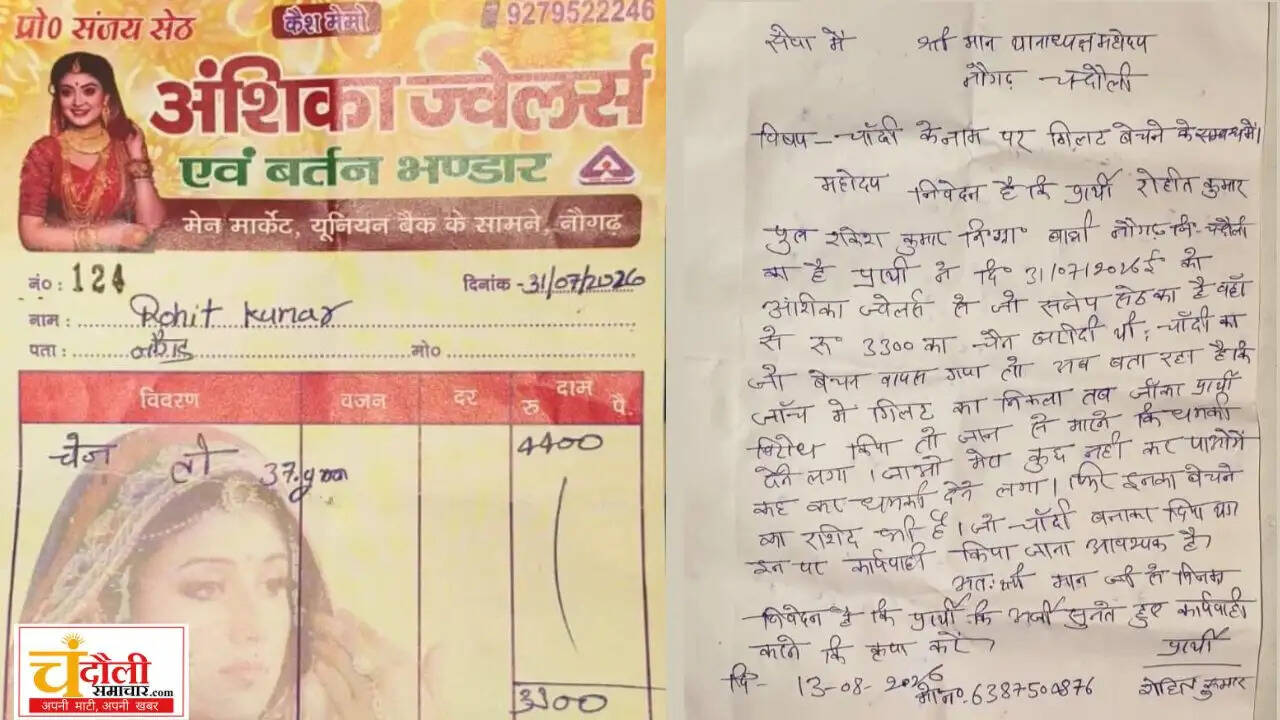 प्रो0 संजय सेठ
कैश मेमो
9279522246
अंशिका ज्वेलर्स
एवं बर्तन भण्डार
मेन मार्केट, यूनियन बैंक के सामने, नौगढ़
नं० : 124
दिनांक - 31/07/2026
नाम : Rohit kumar
पता :
मो०
विवरण वजन दर दाम
रु. पै.
चेन 37.gram 4400
3300
चंदौली
समाचार.com
अपनी माटी, अपनी खबर
सेवा में श्री मान थानाध्यक्ष महोदय
नौगढ़ - चंदौली
विषय - चाँदी के नाम पर गिलट बेचने के सम्बन्ध में।
महोदय निवेदन है कि प्रार्थी रोहीत कुमार
पुत्र कुमार नौगढ़ जि-चंदौली
का है प्रार्थी ने दि० 31/07/2026ई को
आंशिका ज्वेलर्स से जो सेठ का है वहाँ
से रू 3300 का चैन खरीदी थी, चाँदी का
जो बेचने वापस गया तो अब बता रहा है कि
जाँच मे गिलट का निकला तब प्रार्थी
विरोध किया तो जान से मारने कि धमकी
देने लगा। जाओ मेरा कुछ नही कर पाओगे
कह कर धमकी देने लगा। फिर इनका बेचने
का रशिद भी है। जो चाँदी बनाकर दिया था
इन पर कार्यवाही किया जाना आवश्यक है,
अतः श्री मान जी से
निवेदन है कि प्रार्थी कि अर्जी सुनते हुए कार्यवाही
करने कि कृपा करें,
प्रार्थी
दि- 13-08-2026
मो०न०. 6387500876
रोहित कुमार